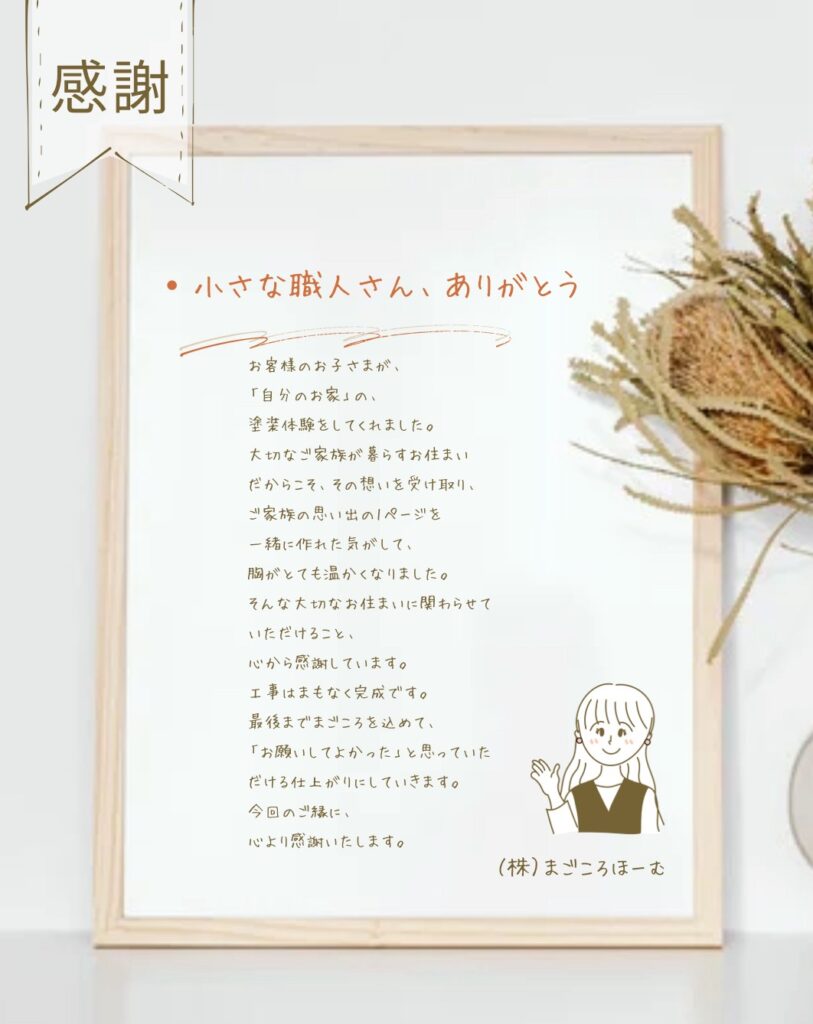 感謝
• 小さな職人さん、ありがとう
お客様のお子さまが、
「自分のお家」の、
塗装体験をしてくれました。
大切なご家族が暮らすお住まい
だからこそ、その想いを受け取り、
ご家族の思い出の1ページを
一緒に作れた気がして、
胸がとても温かくなりました。
そんな大切なお住まいに関わらせて
いただけること、
心から感謝しています。
工事はまもなく完成です。
最後までまごころを込めて、
「お願いしてよかった」と思っていた
だける仕上がりにしていきます。
今回のご縁に、
心より感謝いたします。
(株)まごころほーむ